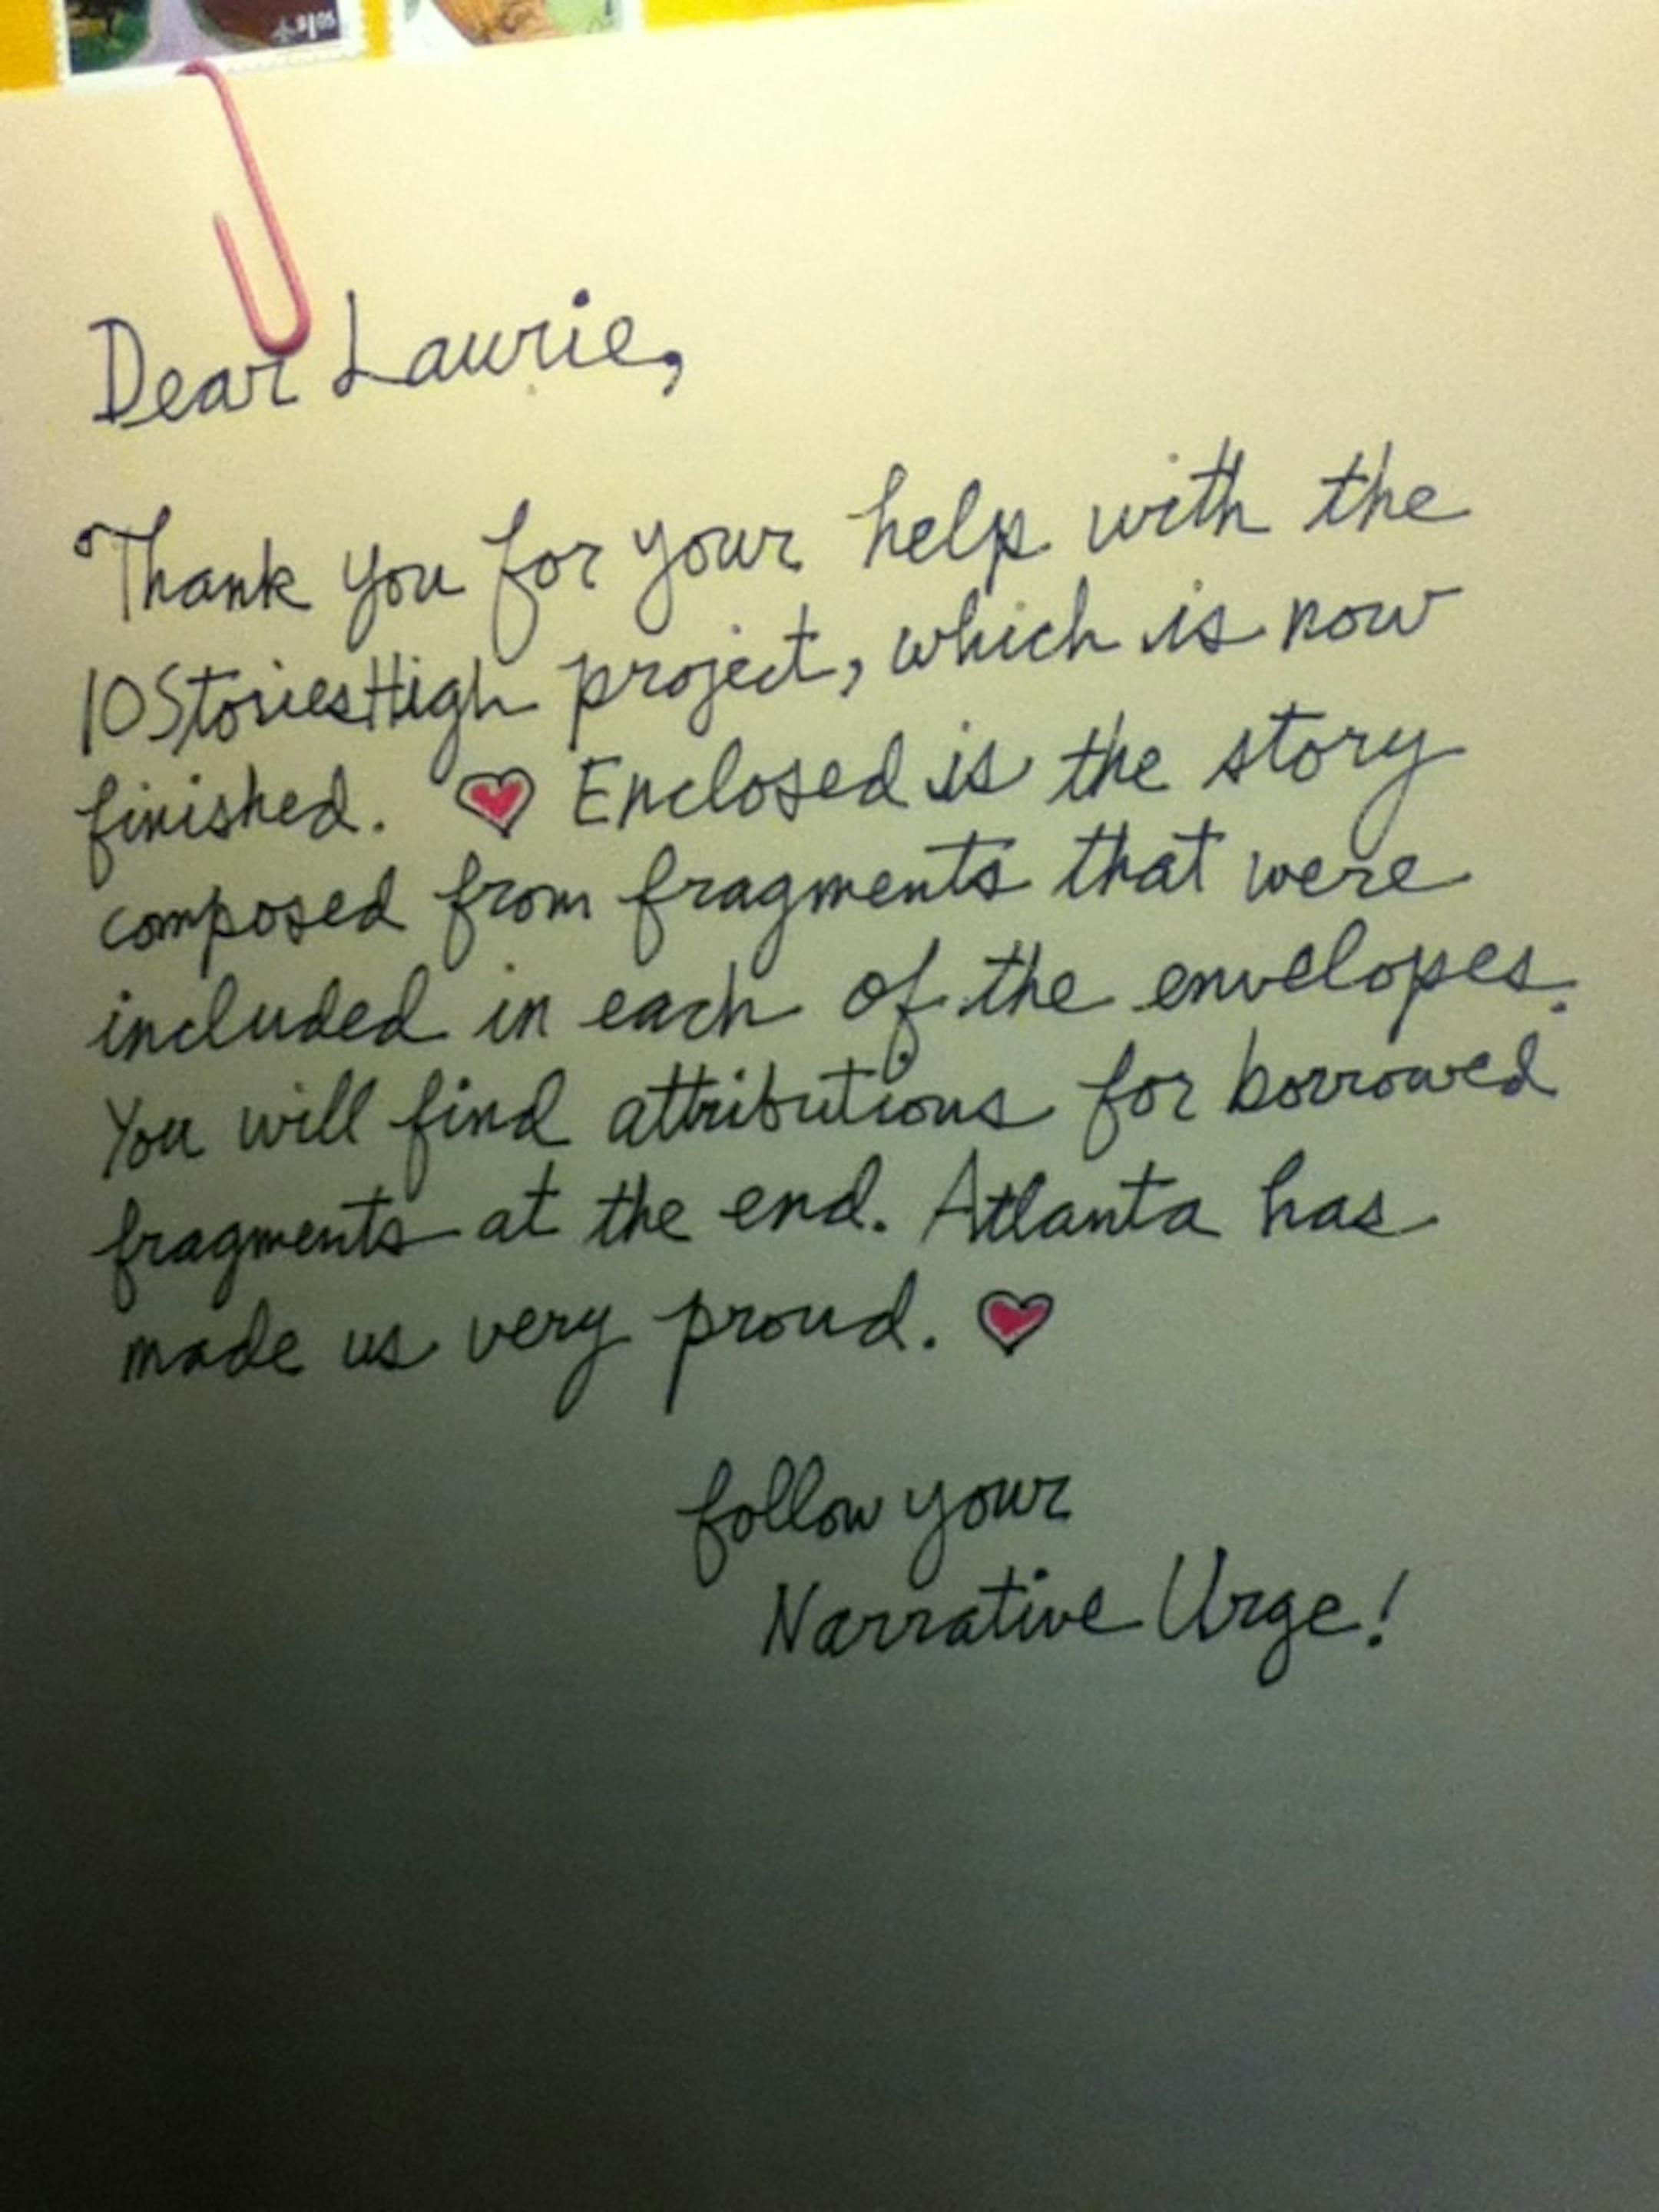 Dear Laurie,
Thank you for your help with the
10StoriesHigh project, which is now
finished. ♥ Enclosed is the story
composed from fragments that were
included in each of the envelopes.
You will find attributions for borrowed
fragments at the end. Atlanta has
made us very proud. ♥
follow your
Narrative Urge!